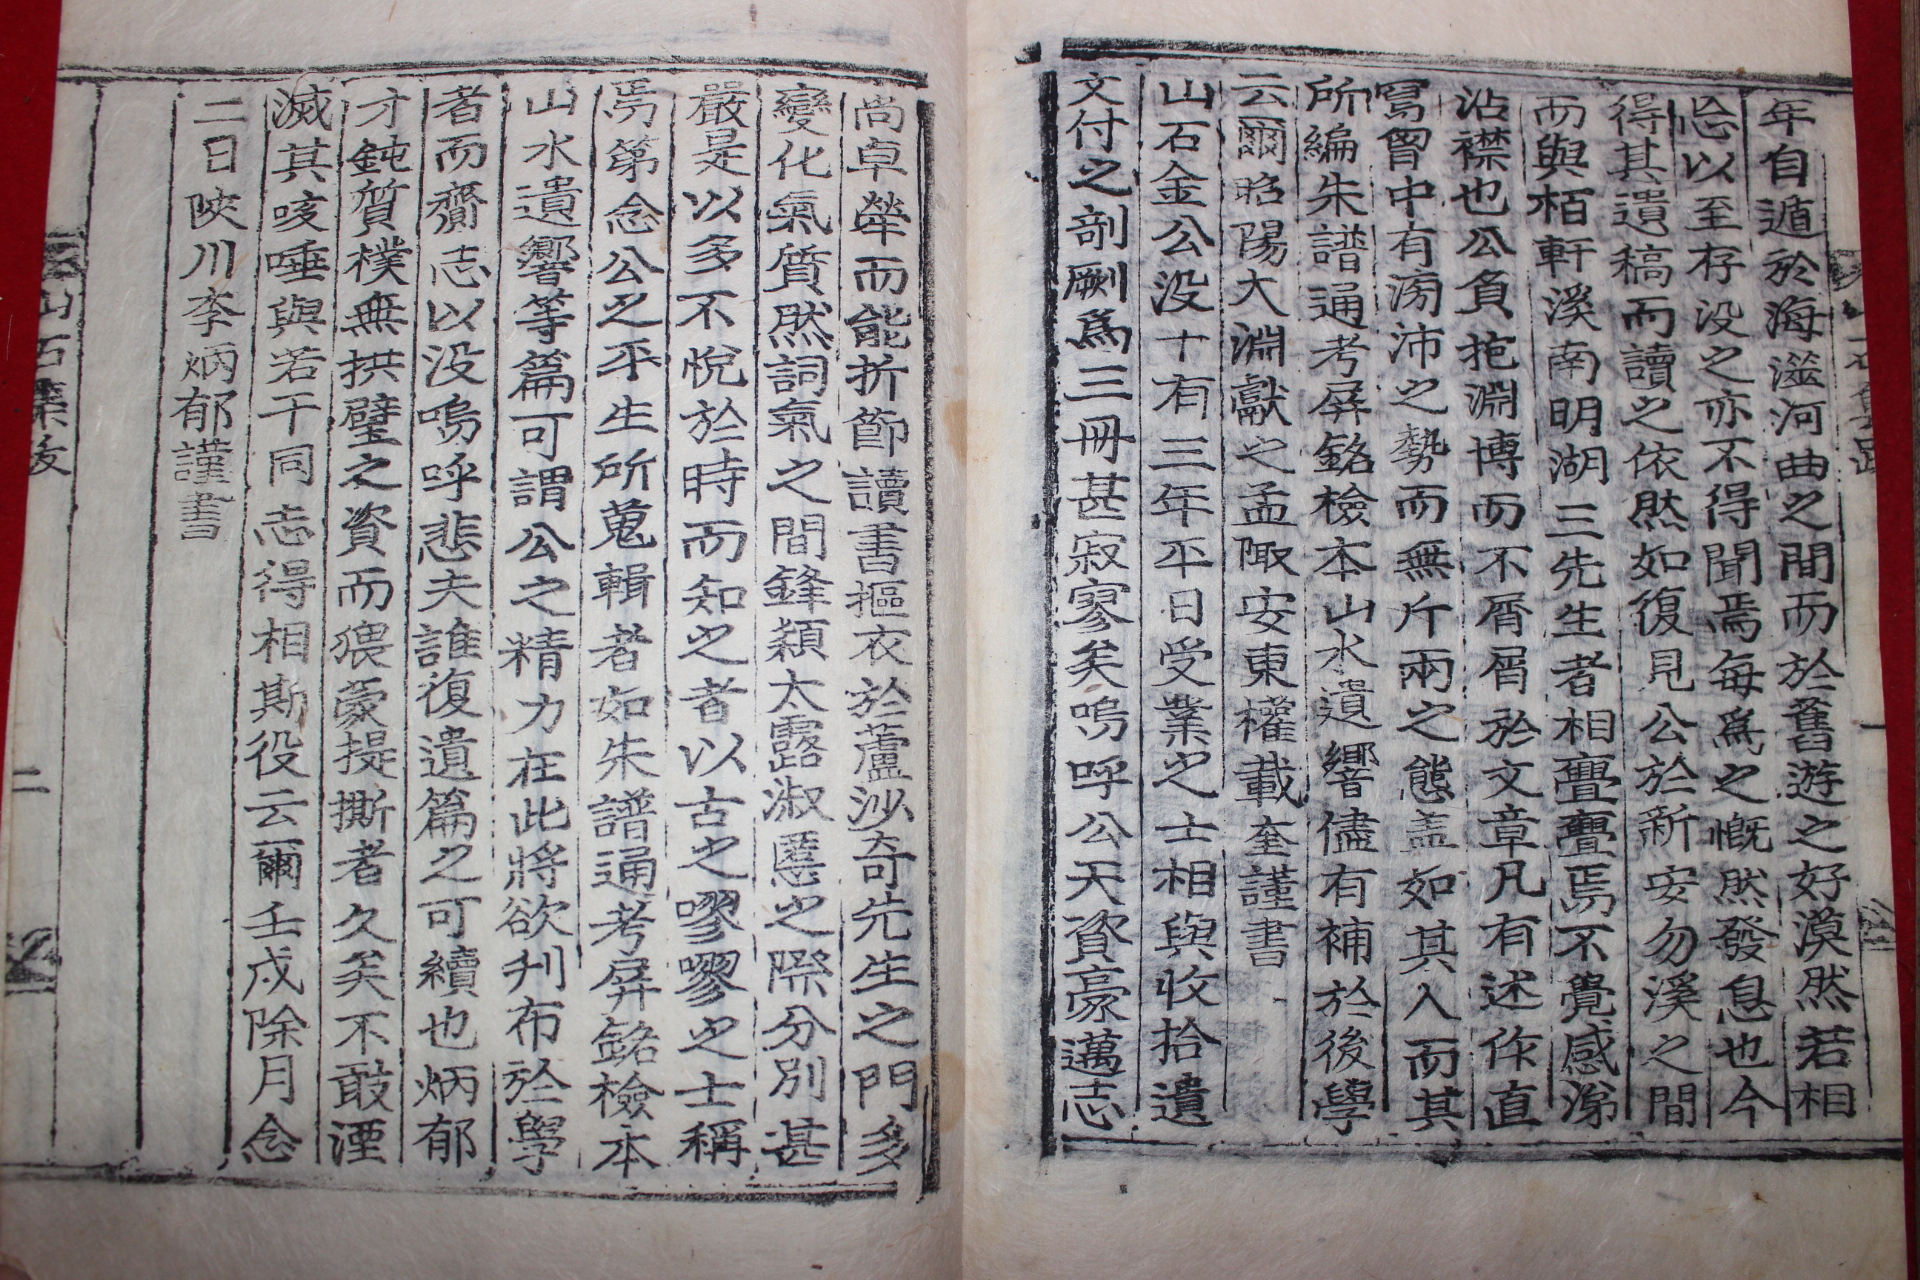 年自遁於海澨河曲之間而於舊遊之好漠然若相
忘以至存没之亦不得聞焉每爲之慨然發息也今
得其遺稿而讀之依然如復見公於新安勿溪之間
而與栢軒溪南明湖三先生者相亹亹焉不覺感涕
沾襟也公負抱淵博而不屑屑於文章凡有述作直
寫胷中有滂沛之勢而無斤兩之態盖如其人而其
所編朱譜通考屏銘檢本山水遺響儘有補於後學
云爾昭陽大淵獻之孟陬安東權載奎謹書
山石金公没十有三年平日受業之士相與收拾遺
文付之剞劂爲三冊甚寂寥矣嗚呼公天資豪邁志
尚卓犖而能折節讀書摳衣於蘆沙奇先生之門多
變化氣質然詞氣之間鋒穎太露淑慝之際分別甚
嚴是以多不悅於時而知之者以古之嘐嘐之士稱
焉第念公之平生所蒐輯者如朱譜通考屏銘檢本
山水遺響等篇可謂公之精力在此將欲刋布於學
者而齎志以没嗚呼悲夫誰復遺篇之可續也炳郁
才鈍質樸無拱璧之資而猥蒙提撕者久矣不敢湮
滅其咳唾與若干同志得相斯役云爾壬戌除月念
二日陜川李炳郁謹書
山石集後
二